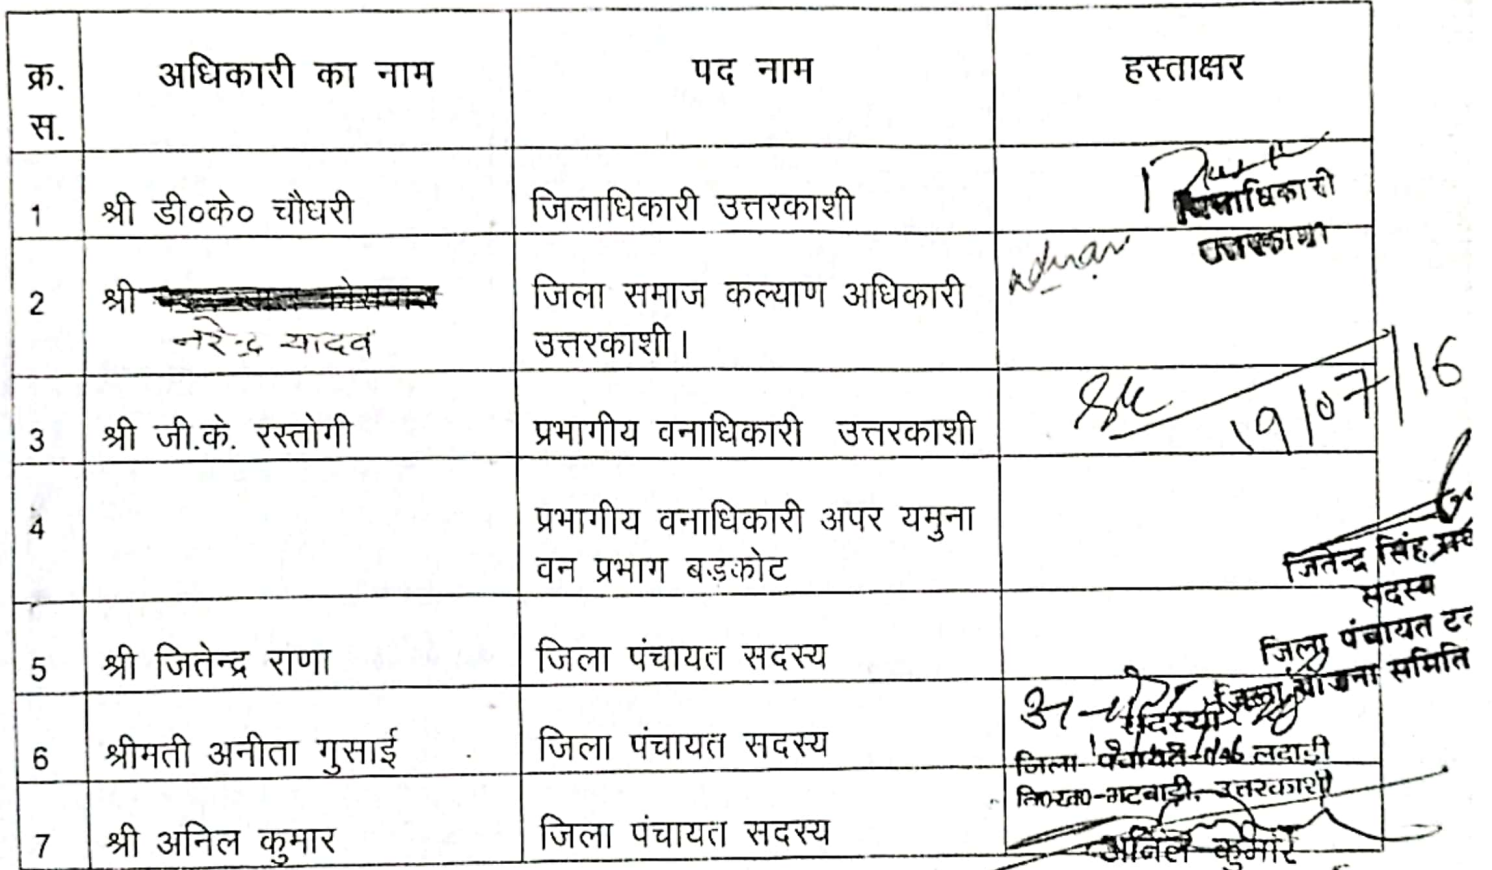 क्र. स. अधिकारी का नाम पद नाम हस्ताक्षर
1 श्री डी०के० चौधरी जिलाधिकारी उत्तरकाशी
जिलाधिकारी
उत्तरकाशी
2 श्री जिला समाज कल्याण अधिकारी
नरेन्द्र यादव उत्तरकाशी।
3 श्री जी.के. रस्तोगी प्रभागीय वनाधिकारी उत्तरकाशी
19/07/16
4 प्रभागीय वनाधिकारी अपर यमुना
वन प्रभाग बड़कोट
जितेन्द्र सिंह
सदस्य
5 श्री जितेन्द्र राणा जिला पंचायत सदस्य
जिला पंचायत
जिला योजना समिति
6 श्रीमती अनीता गुसाई जिला पंचायत सदस्य
सदस्या
जिला पंचायत
उत्तरकाशी
7 श्री अनिल कुमार जिला पंचायत सदस्य
अनिल कुमार